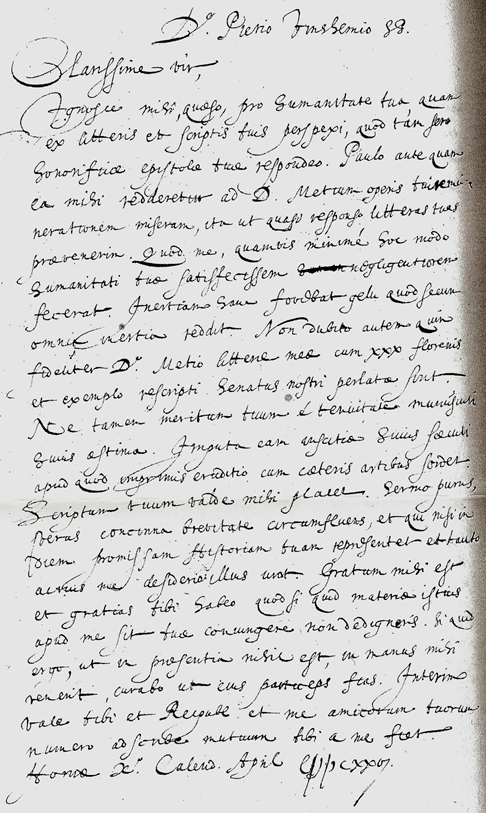 D.º Pietio Finshemio SS.
Clarissime vir,
Ignosce mihi, quæso, pro humanitate tua, quam
ex litteris et scriptis tuis perspexi, quod tam sero
honorificæ epistolæ tuæ respondeo. Paulo ante quam
ea mihi redderetur ad D. Metium operis tui remu-
nerationem miseram, ita ut quasi responso litteras tuas
prævenerim. Quod me, quamvis minimé hoc modo
humanitati tuæ satisfecissem negligentiorem
fecerat. Inertiam hanc fovebat gelu quod secum
omnia inertia reddit. Non dubito autem quin
fideliter D.º Metio litteræ meæ cum xxx florenis
et exemplo rescripti Senatus nostri perlatæ sint.
Ne tamen meritum tuum é tenuitate munusculi
huius æstima. Imputa eam inscitiæ huius sæculi
apud quod imprimis eruditio cum cæteris artibus sordet.
Scriptum tuum valde mihi placet. Sermo purus,
verus concinna brevitate circumfluens, et qui nisi in
diem promissam Historiam tuam representet et tanto
acrius me desiderio illius urat. Gratum mihi est
et gratias tibi habeo quod si quid materiæ istius
apud me sit tuæ coniungere non dedigneris. Si quid
ergo, ut in præsentia nihil est, in manus mihi
venerit curabo ut eius particeps fias. Interim
vale tibi et Reipubl. et me amicorum tuorum
numero adscribe mutuum tibi a me fiet.
Hornæ X. Calend. April